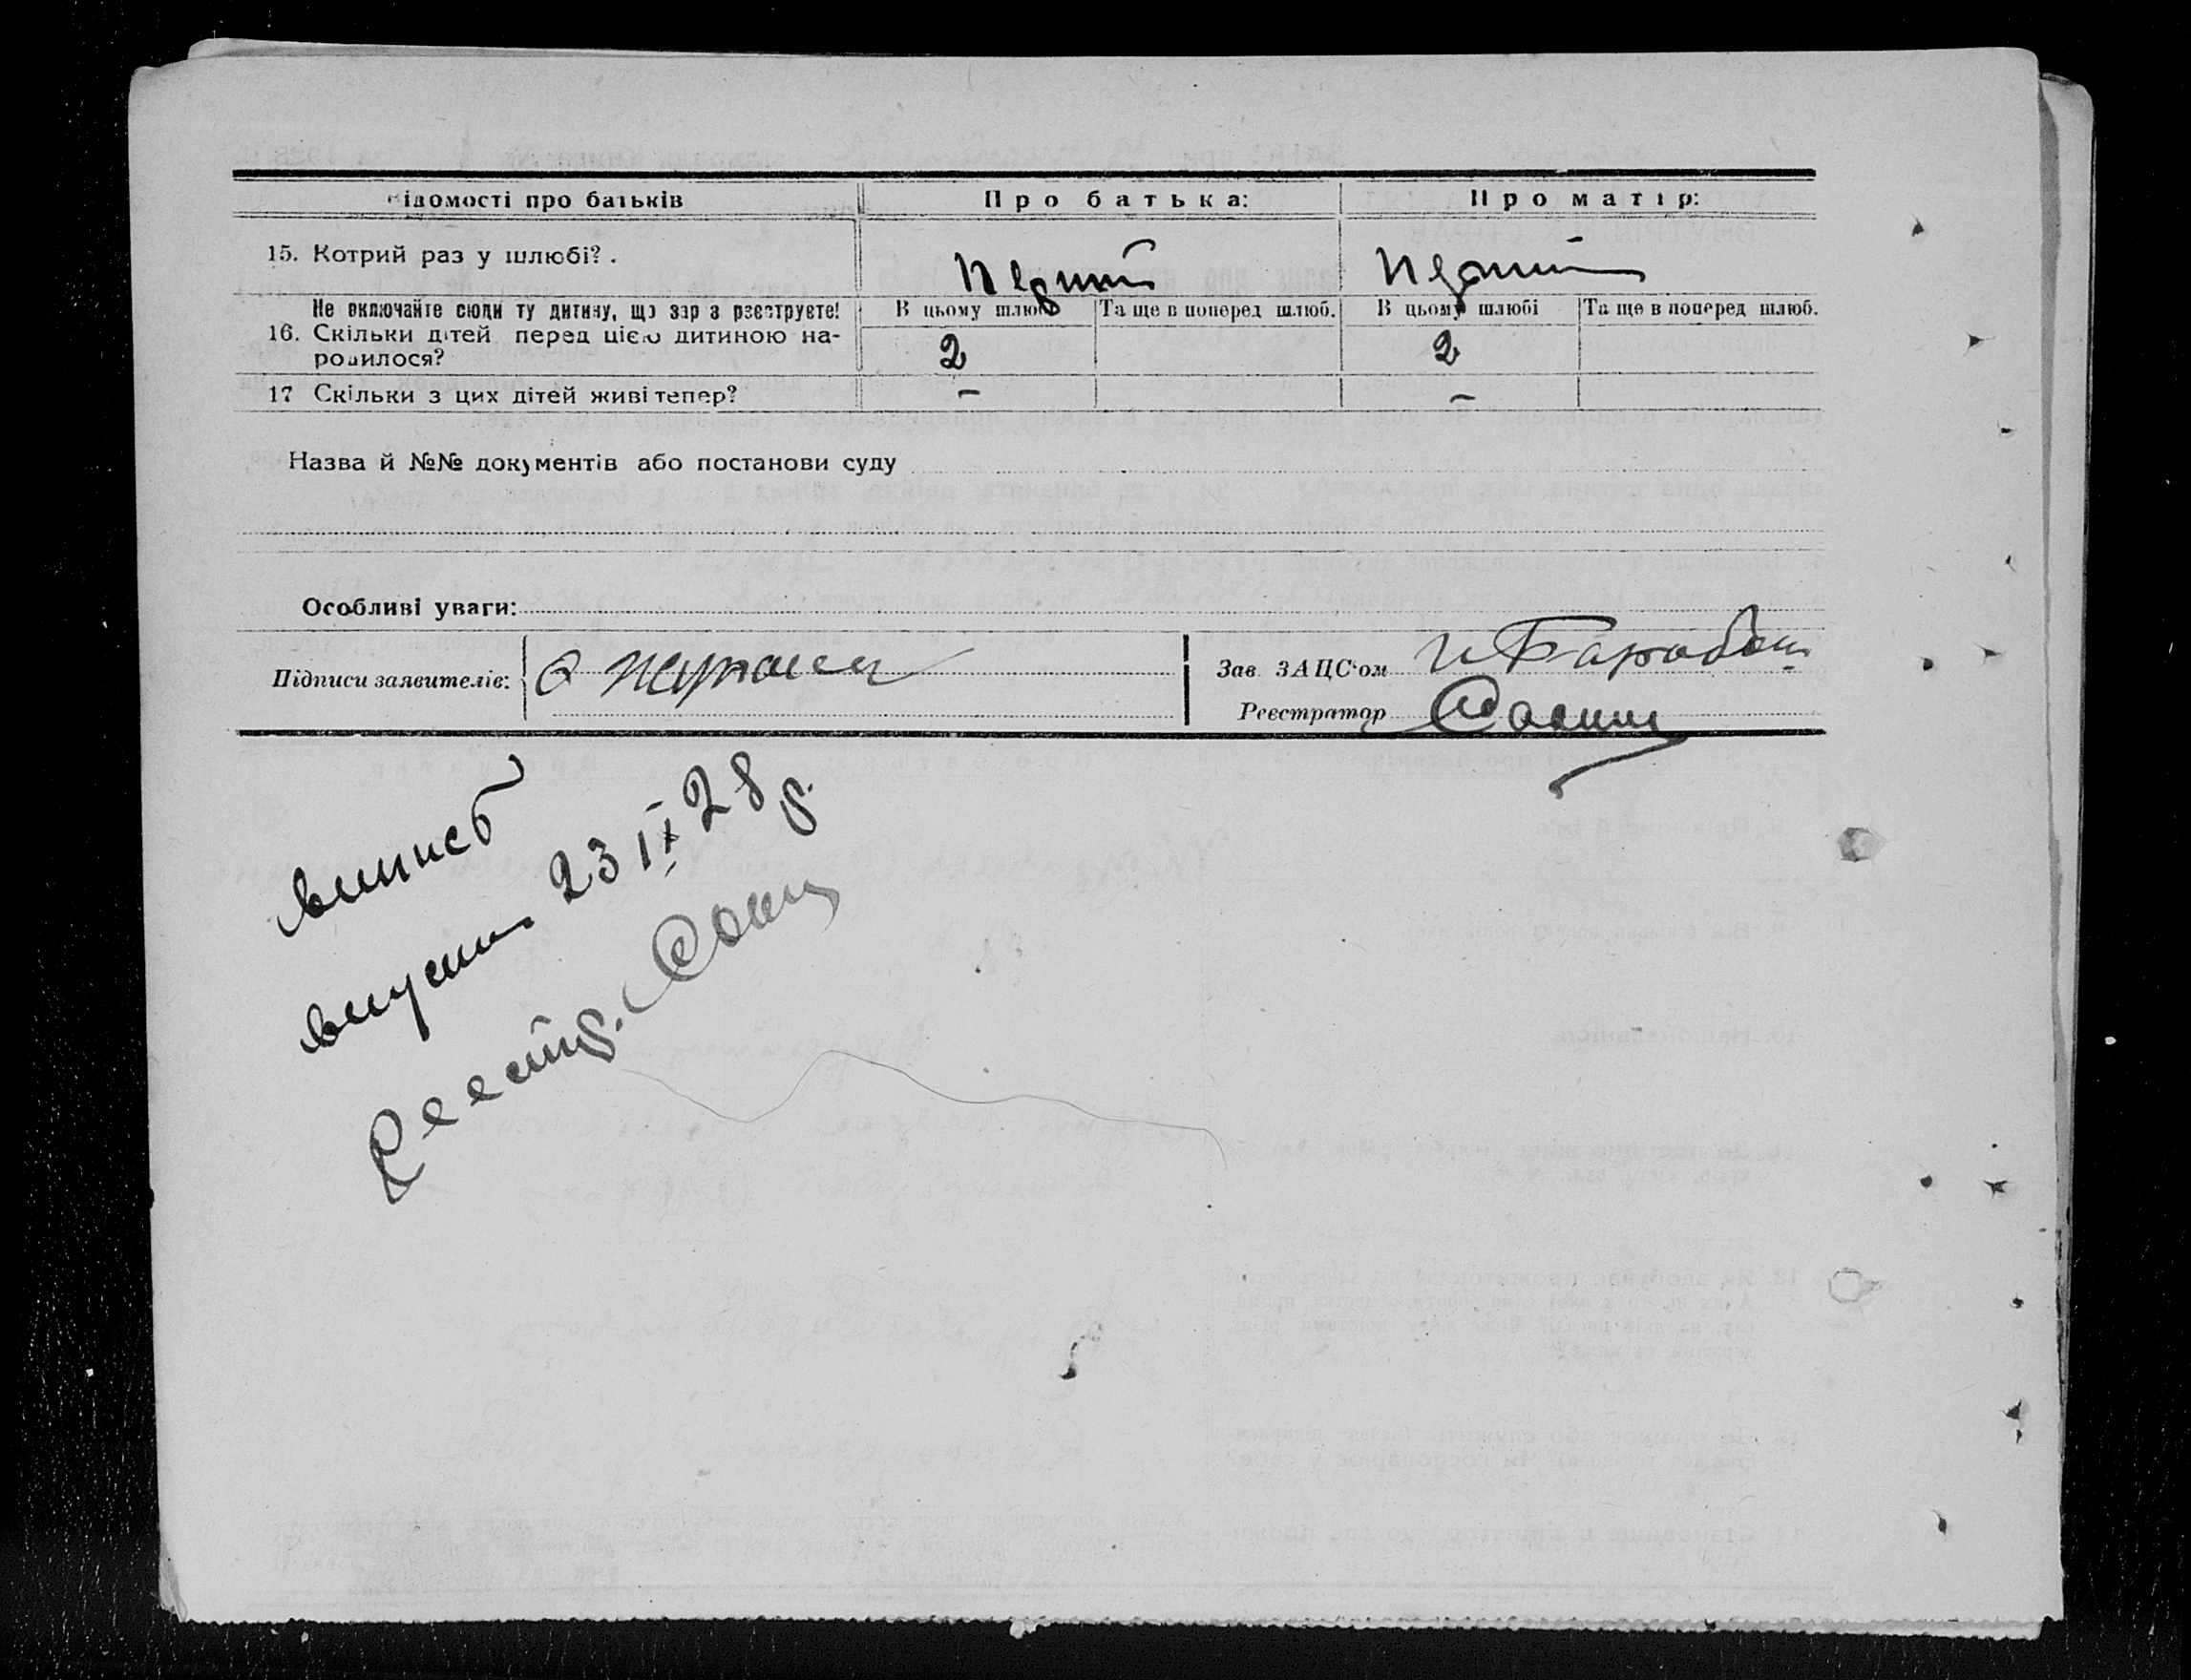 ідомості про батьків Про батька: Про матір:
15. Котрий раз у шлюбі? . Перший Перший
Не включайте сюди ту дитину, що зараз реєструєте! В цьому шлюбі Та ще в поперед шлюб. В цьому шлюбі Та ще в поперед шлюб.
16. Скільки дітей перед цією дитиною на-
родилося? 2 2
17 Скільки з цих дітей живі тепер? – –
Назва й №№ документів або постанови суду
Особливі уваги:
Підписи заявителів:
Зав. ЗАЦС'ом
Реєстратор
випис
23 IX 28 р.
Реєстр.